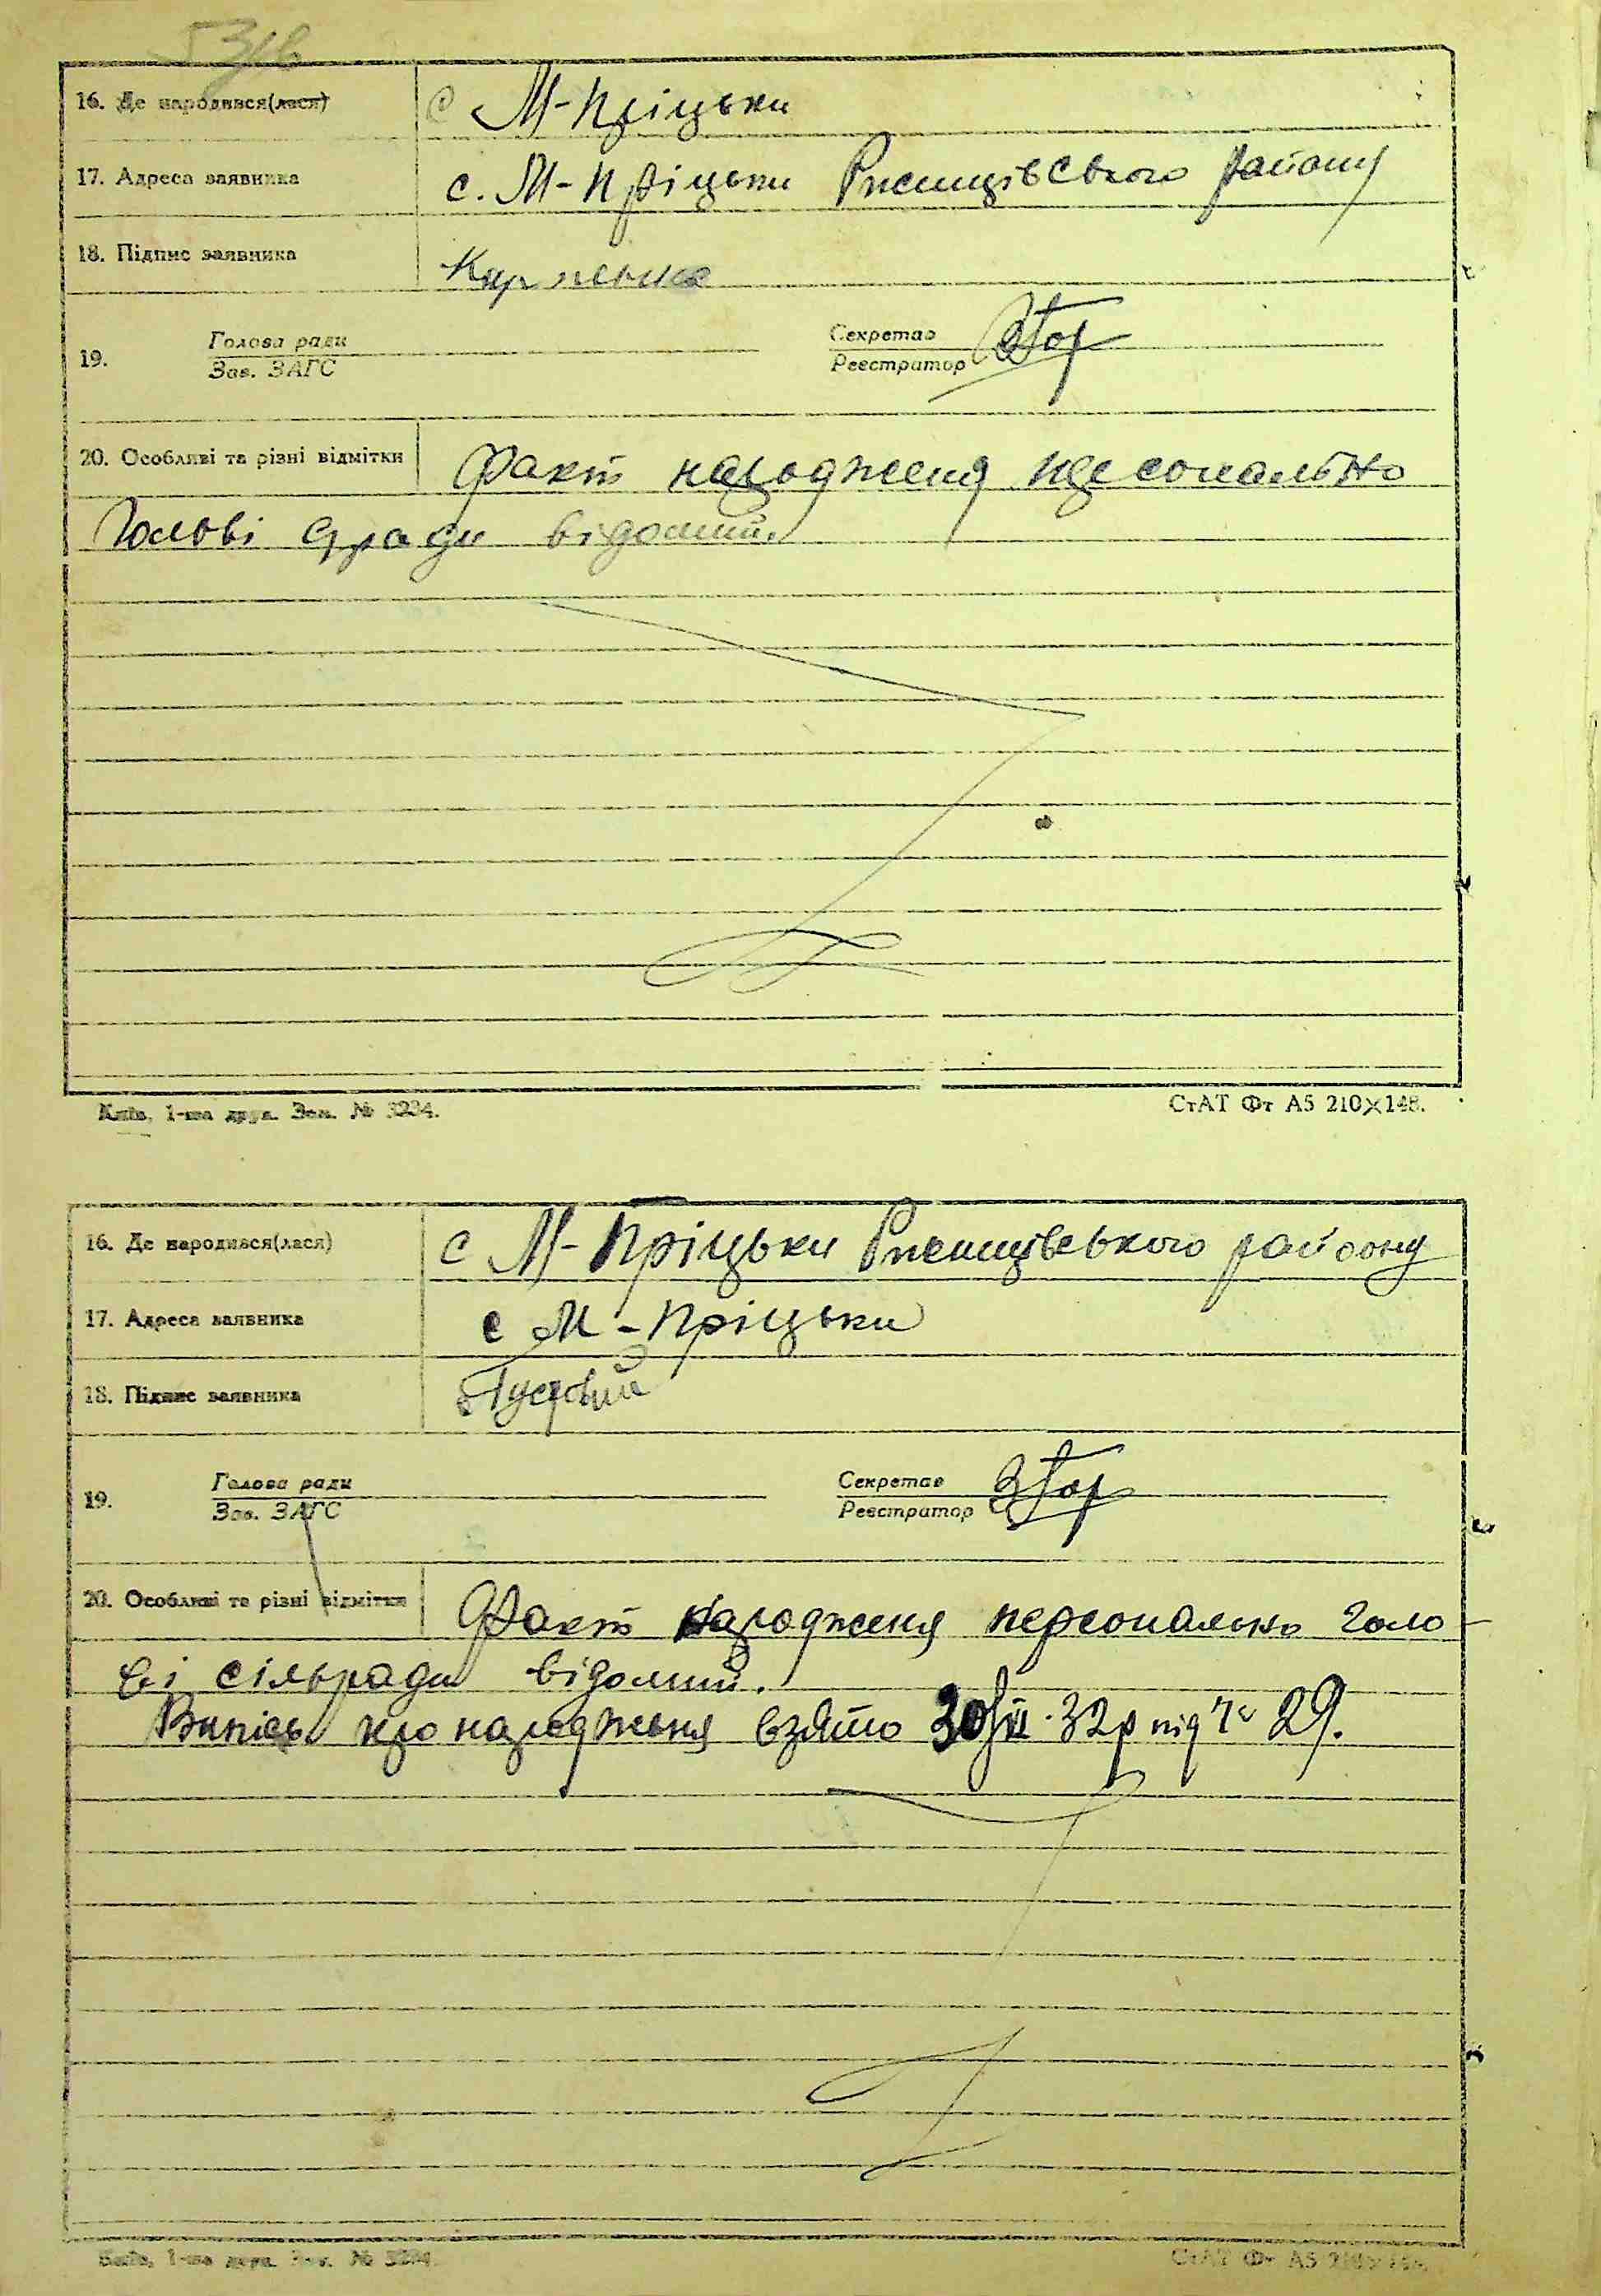 16. Де народився(лася) с М-Пріцьки
17. Адреса заявника с. М-Пріцьки Ржищівського району
18. Підпис заявника
19. Голова ради Секретар
Зав. ЗАГС Реєстратор
20. Особливі та різні відмітки Факт народженя персонально
Голові с/ради відомий.
Київ, 1-ша друк. Зам. № 3234. СтАТ Фт А5 210×148.
16. Де народився(лася) с М-Пріцьки Ржищівського району
17. Адреса заявника с М-Пріцьки
18. Підпис заявника
19. Голова ради Секретар
Зав. ЗАГС Реєстратор
20. Особливі та різні відмітки Факт народженя персонально голо-
ві сільради відомий.
Випісь про народженя взято 32р під № 29.
Київ, 1-ша друк. Зам. № 3234. СтАТ Фт А5 210×148.